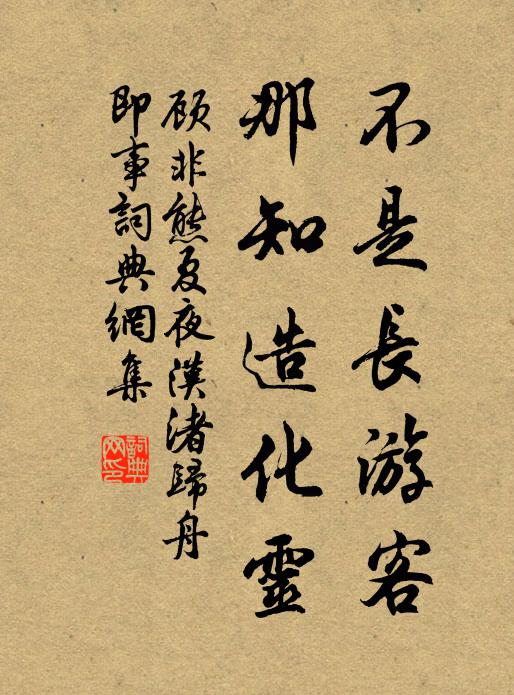 不是長游客
那知造化靈
顧非熊夏夜漢渚歸舟
即事詞典網集
詞典網印